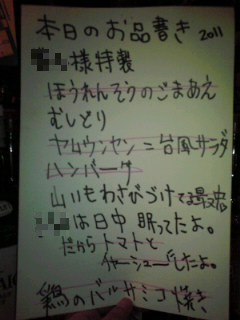 本日のお品書き 2011
様特製
ほうれんそうのごまあえ
むしとり
ヤムウンセン=台風サラダ
ハンバーグ
山いもわさびづけ
は日中 眠ってたよ。
だからトマトと
チャーシューだよ。
鶏のバルサミコ焼き